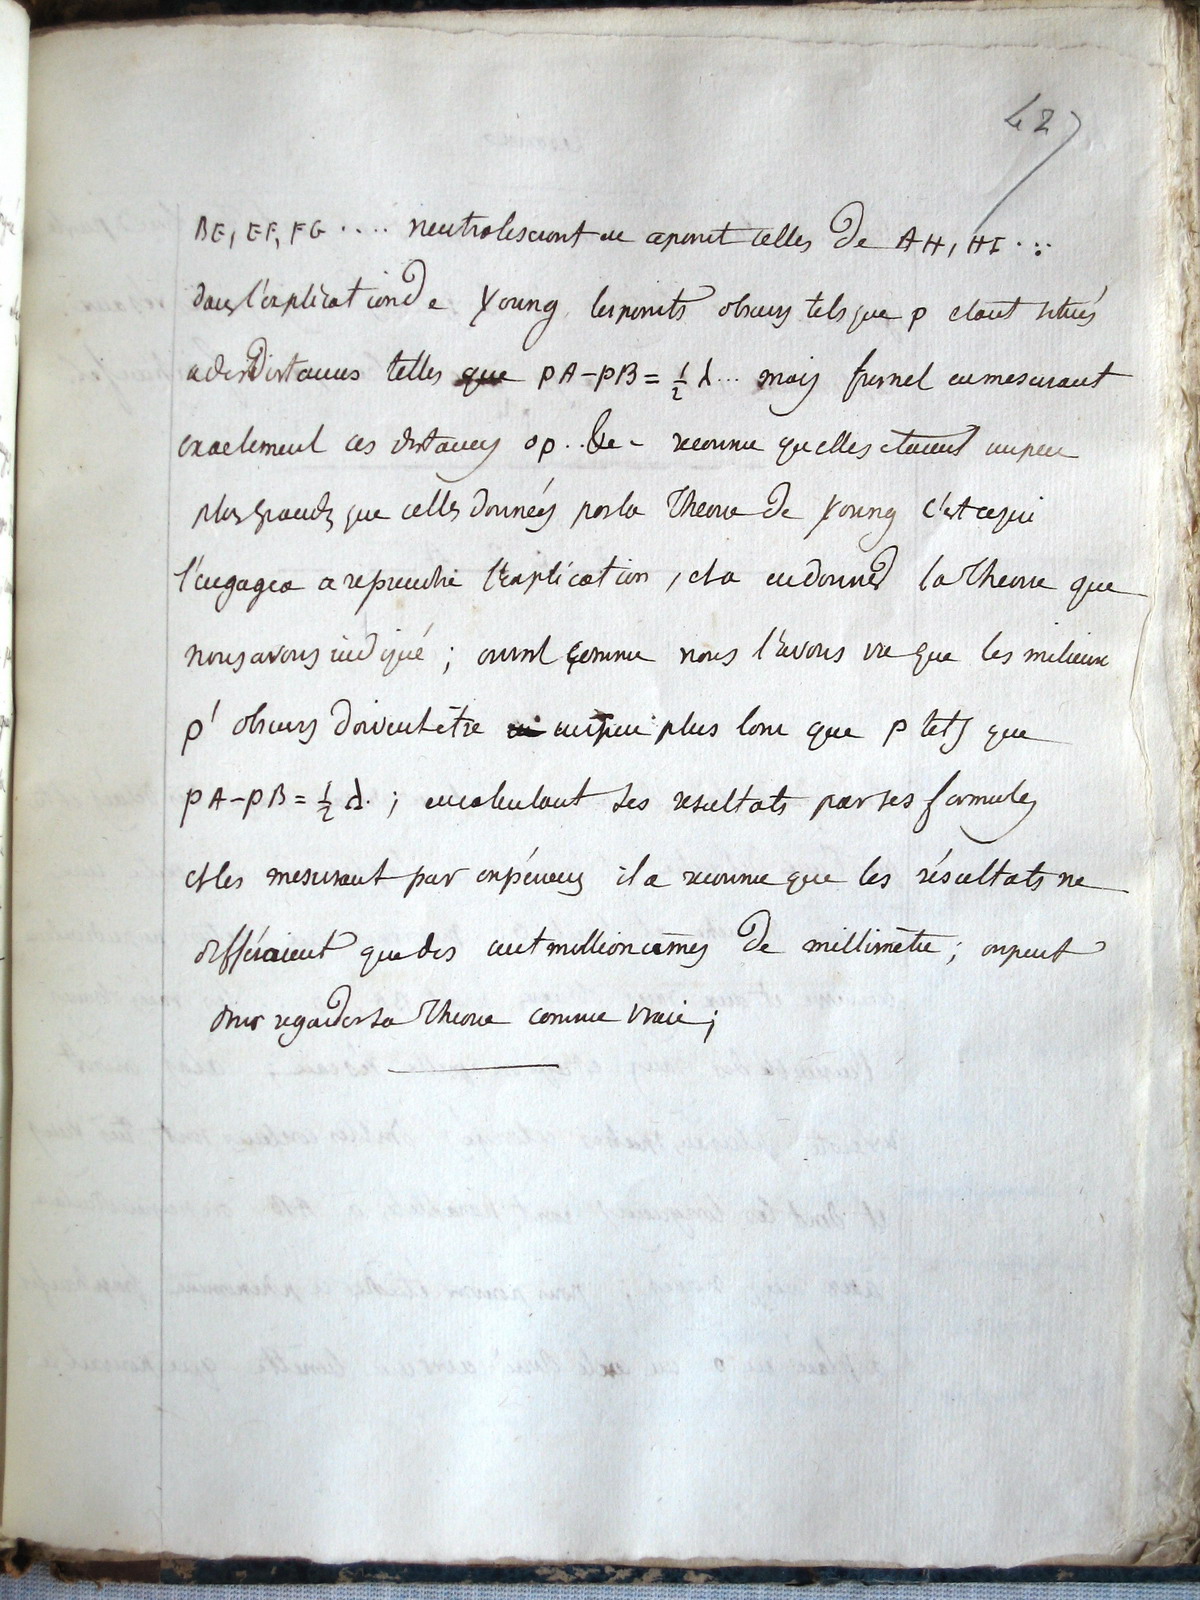 42
BE, EF, FG .... neutraliseront en ce point celles de AH, HI ...
dans l'explication de Young les points obscurs tels que p etant situés
a des distances telles que pA-pB = 1/2 λ... mais fresnel en mesurant
exactement ces distances op.. &e - reconnu qu'elles etaient un peu
plus grandes que celles données par la Theorie de Young c'est ce qui
l'engagea a reprendre l'explication, et a en donner la Theorie que
nous avons indiqué ; comme nous l'avons vu que les milieux
p' obscurs doivent être un peu plus loin que p tels que
pA-pB = 1/2 λ. ; en calculant ses resultats par ses formules
et les mesurant par expérience il a reconnu que les résultats ne
différaient que des cent millionièmes de millimètre ; on peut
donc regarder sa Theorie comme vraie ;